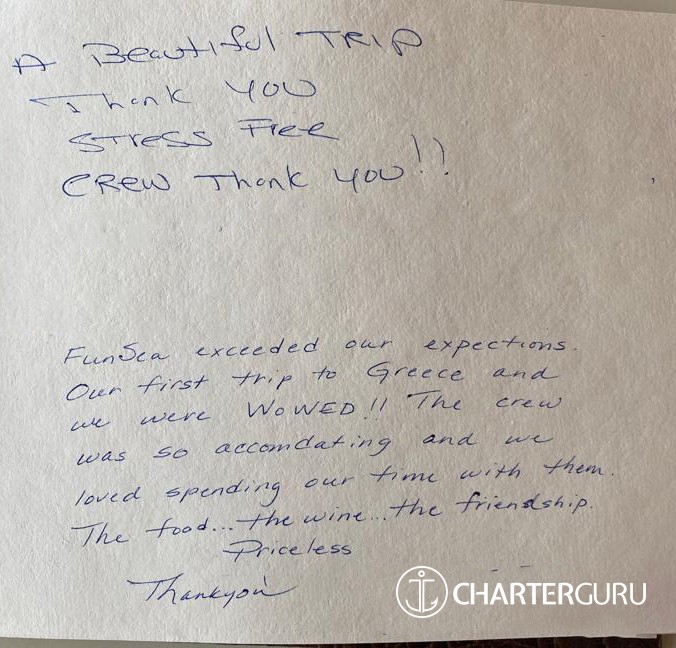 A Beautiful TRIP
Thank YOU
STress Free
CREW Thank YOU!!
FunSea exceeded our expections.
Our first trip to Greece and
we were WOWED!! The crew
was so accomdating and we
loved spending our time with them.
The food...the wine...the friendship.
Priceless
Thankyou
CHARTERGURU